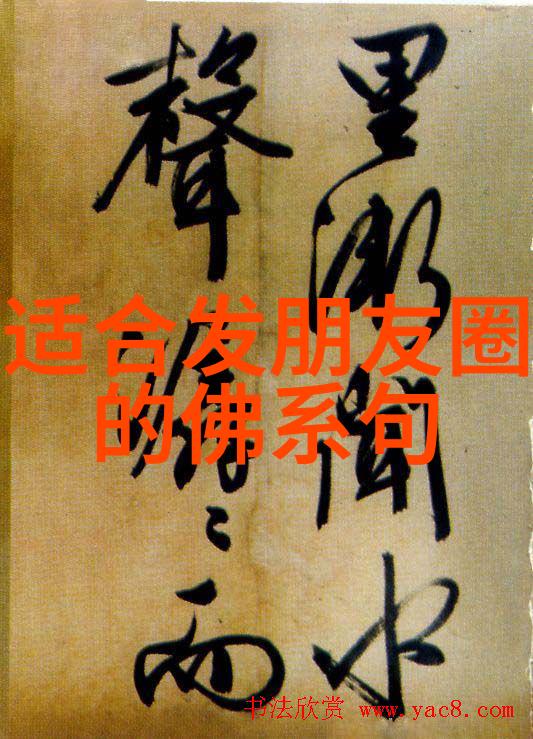 里漸聞水
聲潺〻而
适合发朋友圈
的佛系句
书法欣赏 www.yac8.com